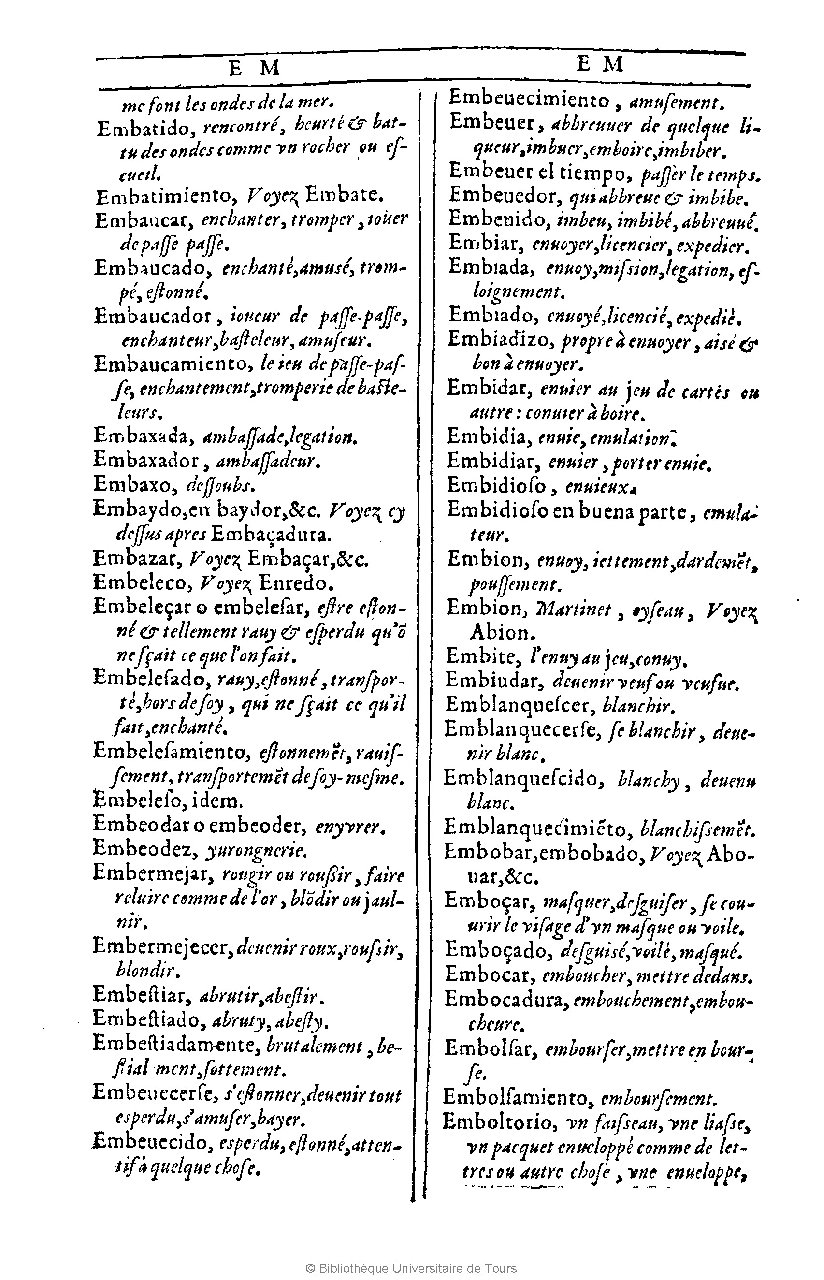 E M
me font les ondes de la mer.
Embatido, rencontré, heurté & bat-
tu des ondes comme vn rocher ou eſ-
cueil.
Embatimiento, Voyez Embate.
Embaucar, enchanter, tromper, iouer
de paſſe paſſe.
Embaucado, enchanté, amusé, trom-
pé, eſtonné.
Embaucador, ioueur de paſſe-paſſe,
enchanteur, baſteleur, amuſeur.
Embaucamiento, le ieu de paſſe-paſ-
ſe, enchantement, tromperie de baſte-
leurs.
Embaxada, ambaſſade, legation.
Embaxador, ambaſſadeur.
Embaxo, deſſoubs.
Embaydo, en baydor, &c. Voyez cy
deſſus apres Embaçadura.
Embazar, Voyez Embaçar, &c.
Embeleco, Voyez Enredo.
Embeleçar o embeleſar, eſtre eſton-
né & tellement rauy & eſperdu qu'õ
ne ſçait ce que l'on fait.
Embeleſado, rauy, eſtonné, tranſpor-
té, hors de ſoy, qui ne ſçait ce qu'il
fait, enchanté.
Embeleſamiento, eſtonnemẽt, rauiſ-
ſement, tranſportemẽt de ſoy-meſme.
Embeleſo, idem.
Embeodar o embeoder, enyvrer.
Embeodez, yurongnerie.
Embermejar, rougir ou rouſſir, faire
reluire comme de l'or, blõdir ou jaul-
nir.
Embermejecer, deuenir roux, rouſſir,
blondir.
Embeſtiar, abrutir, abeſtir.
Embeſtiado, abruty, abeſty.
Embeſtiadamente, brutalement, be-
ſtial ment, ſottement.
Embeuecerſe, s'eſtonner, deuenir tout
esperdu, s'amuſer, bayer.
Embeuecido, esperdu, eſtonné, atten-
tif à quelque choſe.
E M
Embeuecimiento, amuſement.
Embeuer, abbreuuer de quelque li-
queur, imbuer, emboire, imbiber.
Embeuer el tiempo, paſſer le temps.
Embeuedor, qui abbreue & imbibe.
Embeuido, imbeu, imbibé, abbreuué.
Embiar, enuoyer, licencier, expedier.
Embiada, enuoy, miſsion, legation, eſ-
loignement.
Embiado, enuoyé, licencié, expedié.
Embiadizo, propre à enuoyer, aisé &
bon à enuoyer.
Embidar, enuier au jeu de cartes ou
autre: conuier à boire.
Embidia, enuie, emulation.
Embidiar, enuier, porter enuie.
Embidioſo, enuieux.
Embidioſo en buena parte, emula-
teur.
Embion, enuoy, iettement, dardemẽt,
pouſſement.
Embion, Martinet, oyſeau, Voyez
Abion.
Embite, l'enuy au jeu, conuy.
Embiudar, deuenir veuf ou veufue.
Emblanqueſcer, blanchir.
Emblanquecerſe, ſe blanchir, deue-
nir blanc.
Emblanqueſcido, blanchy, deuenu
blanc.
Emblanquecimiẽto, blanchiſsemẽt.
Embobar, embobado, Voyez Abo-
uar, &c.
Emboçar, maſquer, deſguiſer, ſe cou-
urir le viſage d'vn maſque ou voile.
Emboçado, deſguisé, voilé, maſqué.
Embocar, emboucher, mettre dedans.
Embocadura, embouchement, embou-
cheure.
Embolſar, embourſer, mettre en bour-
ſe.
Embolſamiento, embourſement.
Emboltorio, vn faiſseau, vne liaſse,
vn pacquet enueloppé comme de let-
tres ou autre choſe, vne enueloppe,
© Bibliothèque Universitaire de Tours